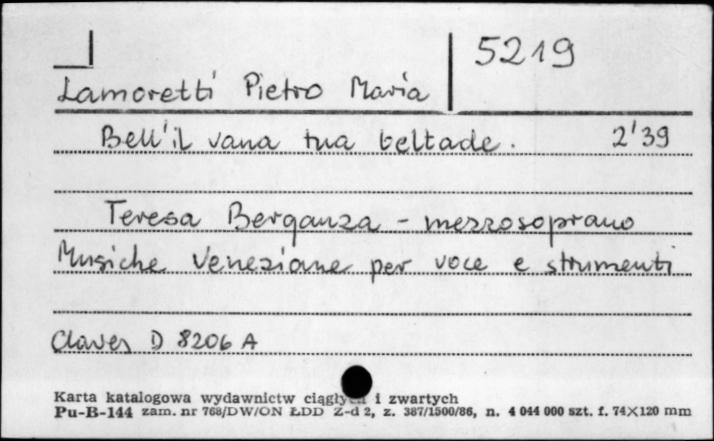 5219
Lamoretti Pietro Maria
Bell'il vana tua beltade. 2'39
Teresa Berganza - mezzosoprano
Musiche Veneziane per voce e strumenti
Claves D 8206 A
Karta katalogowa wydawnictw ciągłych i zwartych
Pu-B-144 zam. nr 768/DW/ON ŁDD Z-d 2, z. 387/1500/86, n. 4 044 000 szt. f. 74×120 mm